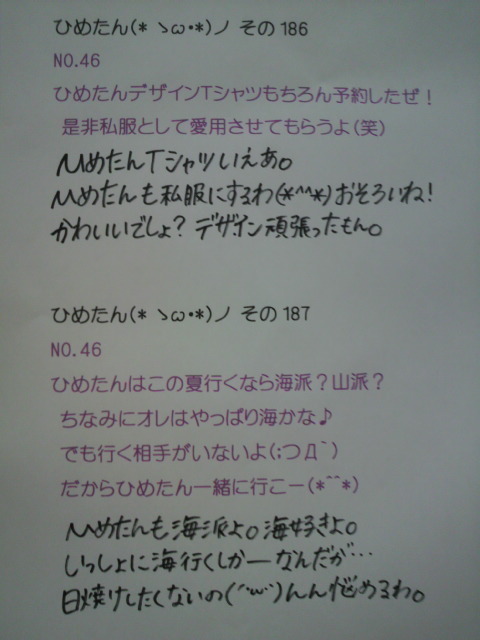 ひめたん(* ゝω・*)ノ その186
NO.46
ひめたんデザインTシャツもちろん予約したぜ！
是非私服として愛用させてもらうよ(笑)
ひめたんTシャツいえあ。
ひめたんも私服にするわ(*^^*)おそろいね！
かわいいでしょ？デザイン頑張ったもん。
ひめたん(* ゝω・*)ノ その187
NO.46
ひめたんはこの夏行くなら海派？山派？
ちなみにオレはやっぱり海かな♪
でも行く相手がいないよ(;つД｀)
だからひめたん一緒に行こー(*^^*)
ひめたんも海派よ。海好きよ。
いっしょに海行くしかーなんだが…
日焼けしたくないの(´・ω・`)んん悩めるわ。